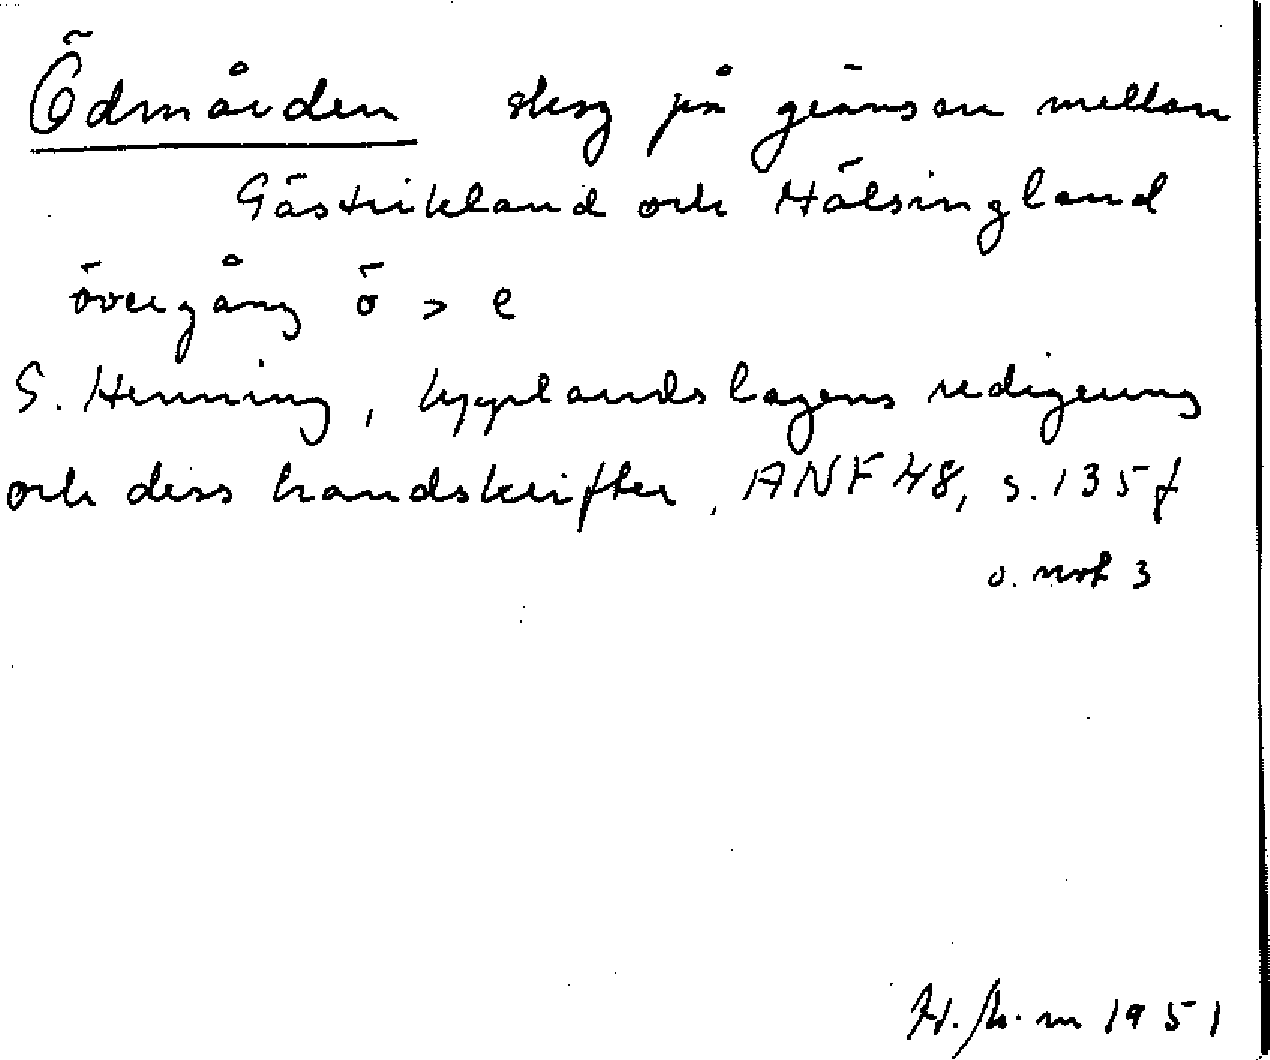 Ödmården skog på gränsen mellan
Gästrikland och Hälsingland
övergång ö > e
S. Henning, Upplandslagens redigering
och dess handskrifter, ANF 48, s. 135 f
o. not 3
1951